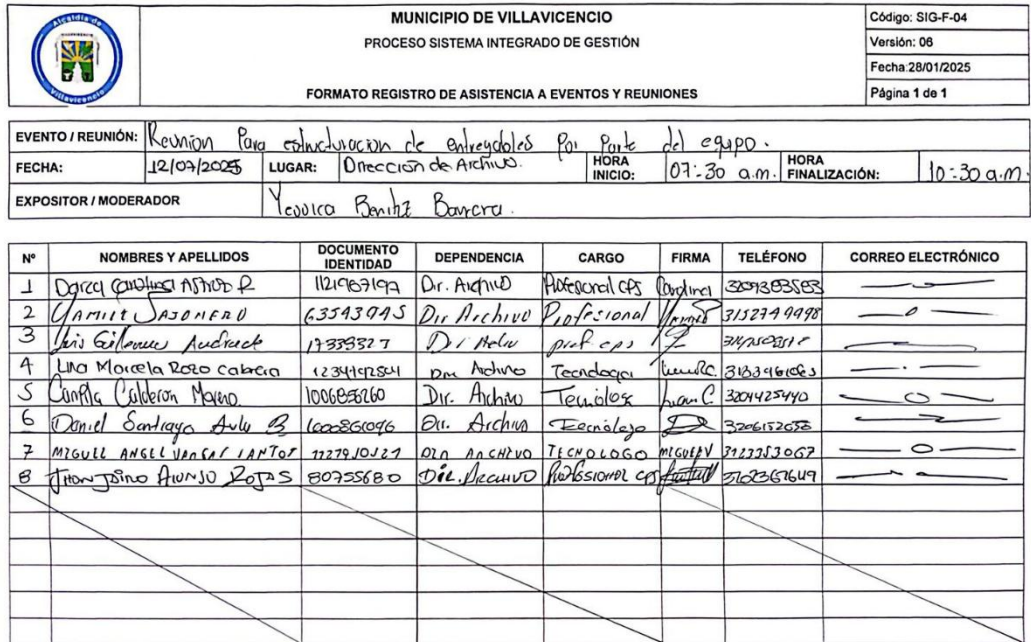 Alcaldía de
Villavicencio
MUNICIPIO DE VILLAVICENCIO
PROCESO SISTEMA INTEGRADO DE GESTIÓN
FORMATO REGISTRO DE ASISTENCIA A EVENTOS Y REUNIONES
Código: SIG-F-04
Versión: 06
Fecha:28/01/2025
Página 1 de 1
EVENTO / REUNIÓN: Reunion Para estructuracion de entregables Por Parte del equipo.
FECHA: 12/07/2025 LUGAR: Dirección de Archivo. HORA INICIO: 07:30 a.m. HORA FINALIZACIÓN: 10:30 a.m.
EXPOSITOR / MODERADOR Yessica Benitez Barrera.
Nº NOMBRES Y APELLIDOS DOCUMENTO IDENTIDAD DEPENDENCIA CARGO FIRMA TELÉFONO CORREO ELECTRÓNICO
1 Carolina Dir. Archivo Profesional CPS Carolina
2 63543945 Dir Archivo Profesional 3152749998
3 Luis Guillermo Andrade 17333327 Dir prof. cps
4 Lina Marcela Rozo Cabrera Dir Archivo Tecnologa
5 Calderon Moreno 1006856260 Dir. Archivo Tecnologa 3204425440
6 Daniel Santiago Dir. Archivo Tecnologo 3206152658
7 MIGUEL ANGEL VARGAS SANTOS DIR ARCHIVO TECNOLOGO MIGUEL V 3123353067
8 ALONSO ROJAS 80755680 Dir. Archivo Profesional CPS